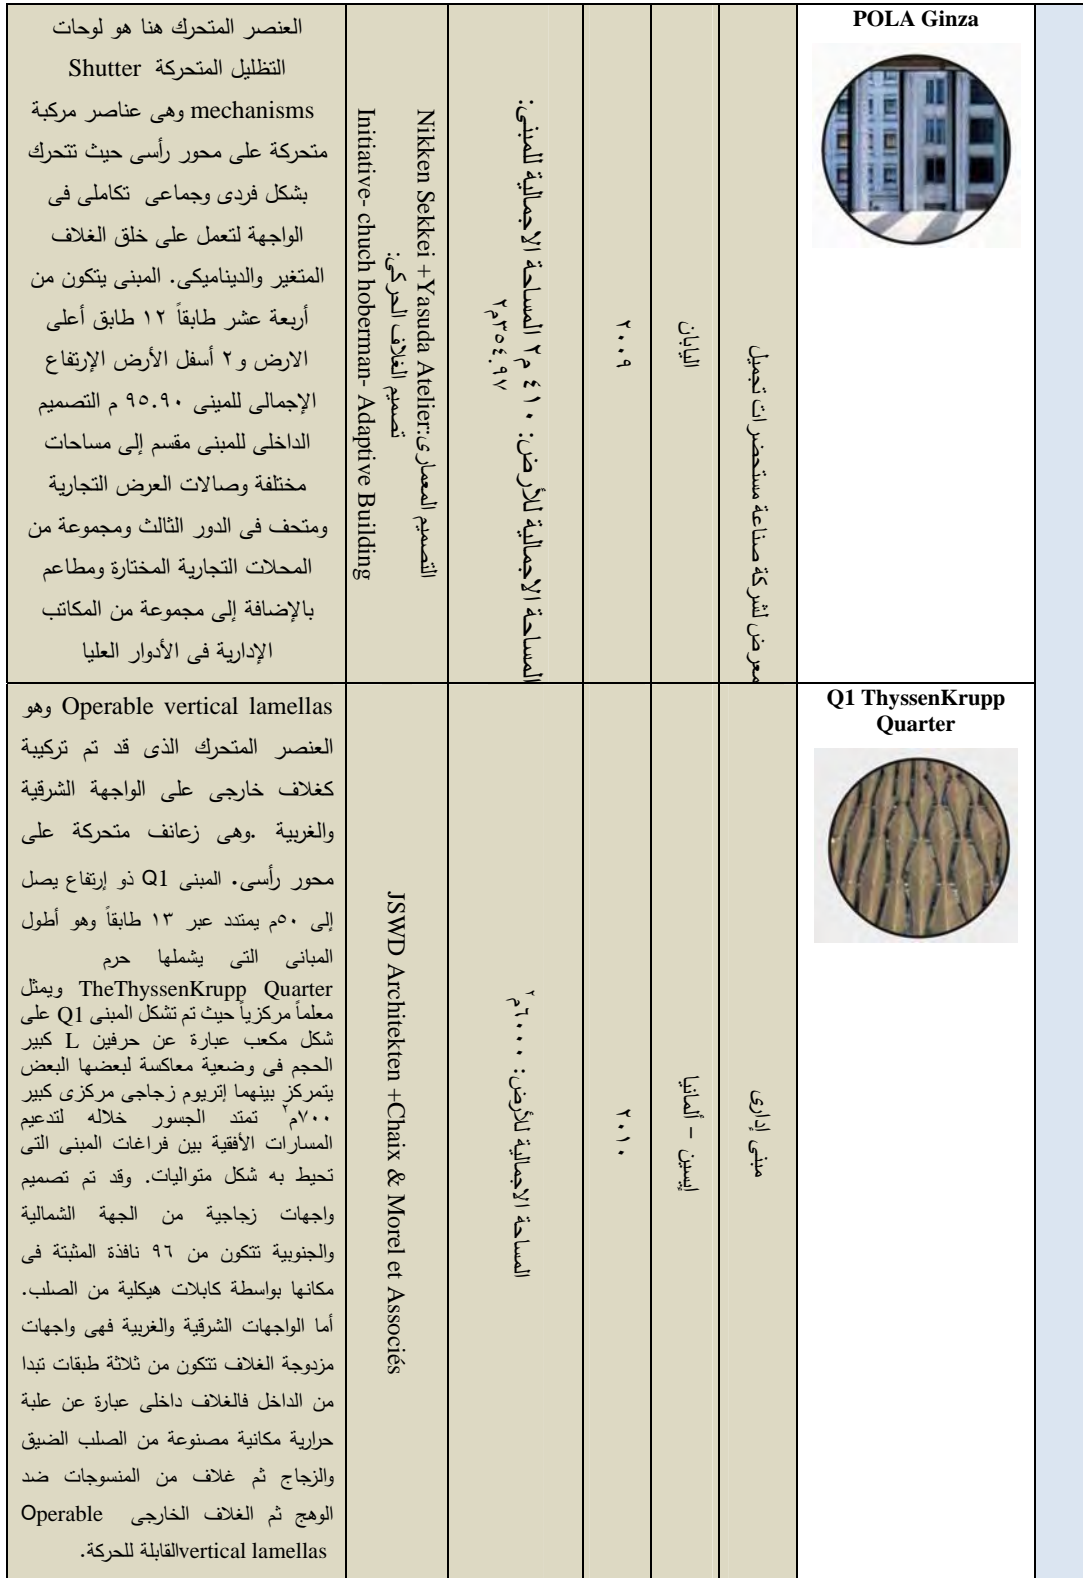 POLA Ginza
معرض لشركة صناعة مستحضرات تجميل
اليابان
٢٠٠٩
المساحة الاجمالية للأرض: ٤١٠ م٢ المساحة الاجمالية للمبنى:
٣٥٤.٩٧م٢
التصميم المعمارى:Nikken Sekkei +Yasuda Atelier
تصميم الغلاف الحركى:
Initiative- chuch hoberman- Adaptive Building
العنصر المتحرك هنا هو لوحات
التظليل المتحركة Shutter
mechanisms وهى عناصر مركبة
متحركة على محور رأسى حيث تتحرك
بشكل فردى وجماعى تكاملى فى
الواجهة لتعمل على خلق الغلاف
المتغير والديناميكى. المبنى يتكون من
أربعة عشر طابقاً ١٢ طابق أعلى
الارض و٢ أسفل الأرض الإرتفاع
الإجمالى للمبنى ٩٥.٩٠ م التصميم
الداخلى للمبنى مقسم إلى مساحات
مختلفة وصالات العرض التجارية
ومتحف فى الدور الثالث ومجموعة من
المحلات التجارية المختارة ومطاعم
بالإضافة إلى مجموعة من المكاتب
الإدارية فى الأدوار العليا
Q1 ThyssenKrupp
Quarter
مبنى إدارى
إيسين – ألمانيا
٢٠١٠
المساحة الاجمالية للأرض: ٦٠٠٠م٢
JSWD Architekten +Chaix & Morel et Associés
Operable vertical lamellas وهو
العنصر المتحرك الذى قد تم تركيبة
كغلاف خارجى على الواجهة الشرقية
والغربية .وهى زعانف متحركة على
محور رأسى. المبنى Q1 ذو إرتفاع يصل
إلى ٥٠م يمتدد عبر ١٣ طابقاً وهو أطول
المبانى التى يشملها حرم
TheThyssenKrupp Quarter ويمثل
معلماً مركزياً حيث تم تشكل المبنى Q1 على
شكل مكعب عبارة عن حرفين L كبير
الحجم فى وضعية معاكسة لبعضها البعض
يتمركز بينهما إتريوم زجاجى مركزى كبير
٧٠٠م٢ تمتد الجسور خلاله لتدعيم
المسارات الأفقية بين فراغات المبنى التى
تحيط به شكل متواليات. وقد تم تصميم
واجهات زجاجية من الجهة الشمالية
والجنوبية تتكون من ٩٦ نافذة المثبتة فى
مكانها بواسطة كابلات هيكلية من الصلب.
أما الواجهات الشرقية والغربية فهى واجهات
مزدوجة الغلاف تتكون من ثلاثة طبقات تبدا
من الداخل فالغلاف داخلى عبارة عن علبة
حرارية مكانية مصنوعة من الصلب الضيق
والزجاج ثم غلاف من المنسوجات ضد
الوهج ثم الغلاف الخارجى Operable
vertical lamellasالقابلة للحركة.